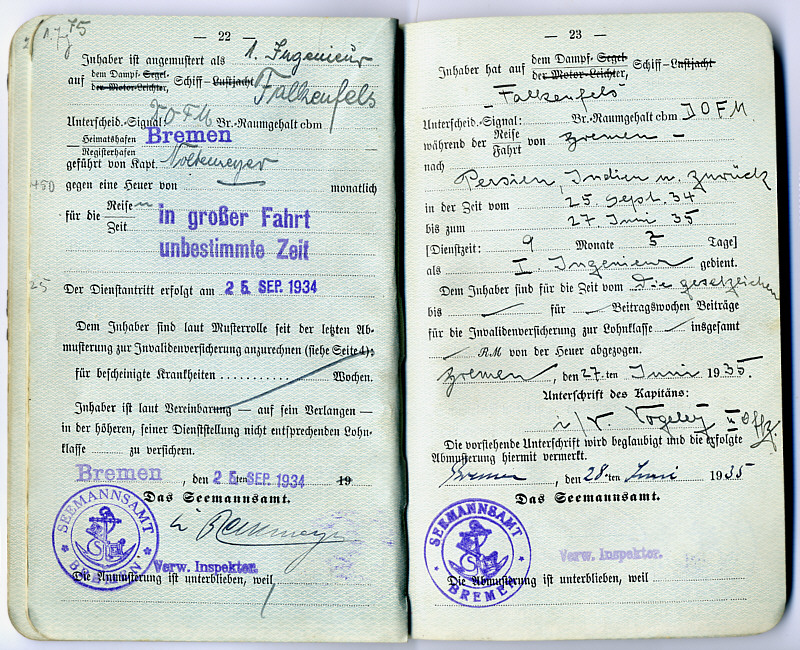 — 22 —
Inhaber ist angemustert als 1. Ingenieur
auf dem Dampf- Segel- der Motor-Leichter, Schiff-Lustjacht Falkenfels
Unterscheid.-Signal: DOFM Br.-Raumgehalt cbm
Heimatshafen
Registerhafen Bremen
geführt von Kapt. Noltemeyer
gegen eine Heuer von monatlich
450
für die Reise Zeit in großer Fahrt
unbestimmte Zeit
Der Dienstantritt erfolgt am 25. SEP. 1934
25
Dem Inhaber sind laut Musterrolle seit der letzten Ab-
musterung zur Invalidenversicherung anzurechnen (siehe Seite 4):
für bescheinigte Krankheiten .......... Wochen.
Inhaber ist laut Vereinbarung — auf sein Verlangen —
in der höheren, seiner Dienststellung nicht entsprechenden Lohn-
klasse zu versichern.
Bremen, den 25ten SEP. 1934 19
Das Seemannsamt.
SEEMANNSAMT
BREMEN
Verw. Inspektor.
Die Anmusterung ist unterblieben, weil
— 23 —
Inhaber hat auf dem Dampf- Segel- der Motor-Leichter, Schiff-Lustjacht
"Falkenfels"
Unterscheid.-Signal: Br.-Raumgehalt cbm DOFM.
während der Reise Fahrt von Bremen —
nach
Persien, Indien u. zurück
in der Zeit vom 25. Sept. 34
bis zum 27 Juni 35
[Dienstzeit: 9 Monate 3 Tage]
als I. Ingenieur gedient.
Dem Inhaber sind für die Zeit vom die gesetzlichen
bis für Beitragswochen Beiträge
für die Invalidenversicherung zur Lohnklasse insgesamt
RM von der Heuer abgezogen.
Bremen, den 27.ten Juni 1935.
Unterschrift des Kapitäns:
i/V. Vogeley II Offz.
Die vorstehende Unterschrift wird beglaubigt und die erfolgte
Abmusterung hiermit vermerkt.
Bremen, den 28.ten Juni 1935
Das Seemannsamt.
SEEMANNSAMT
BREMEN
Verw. Inspektor.
Die Abmusterung ist unterblieben, weil